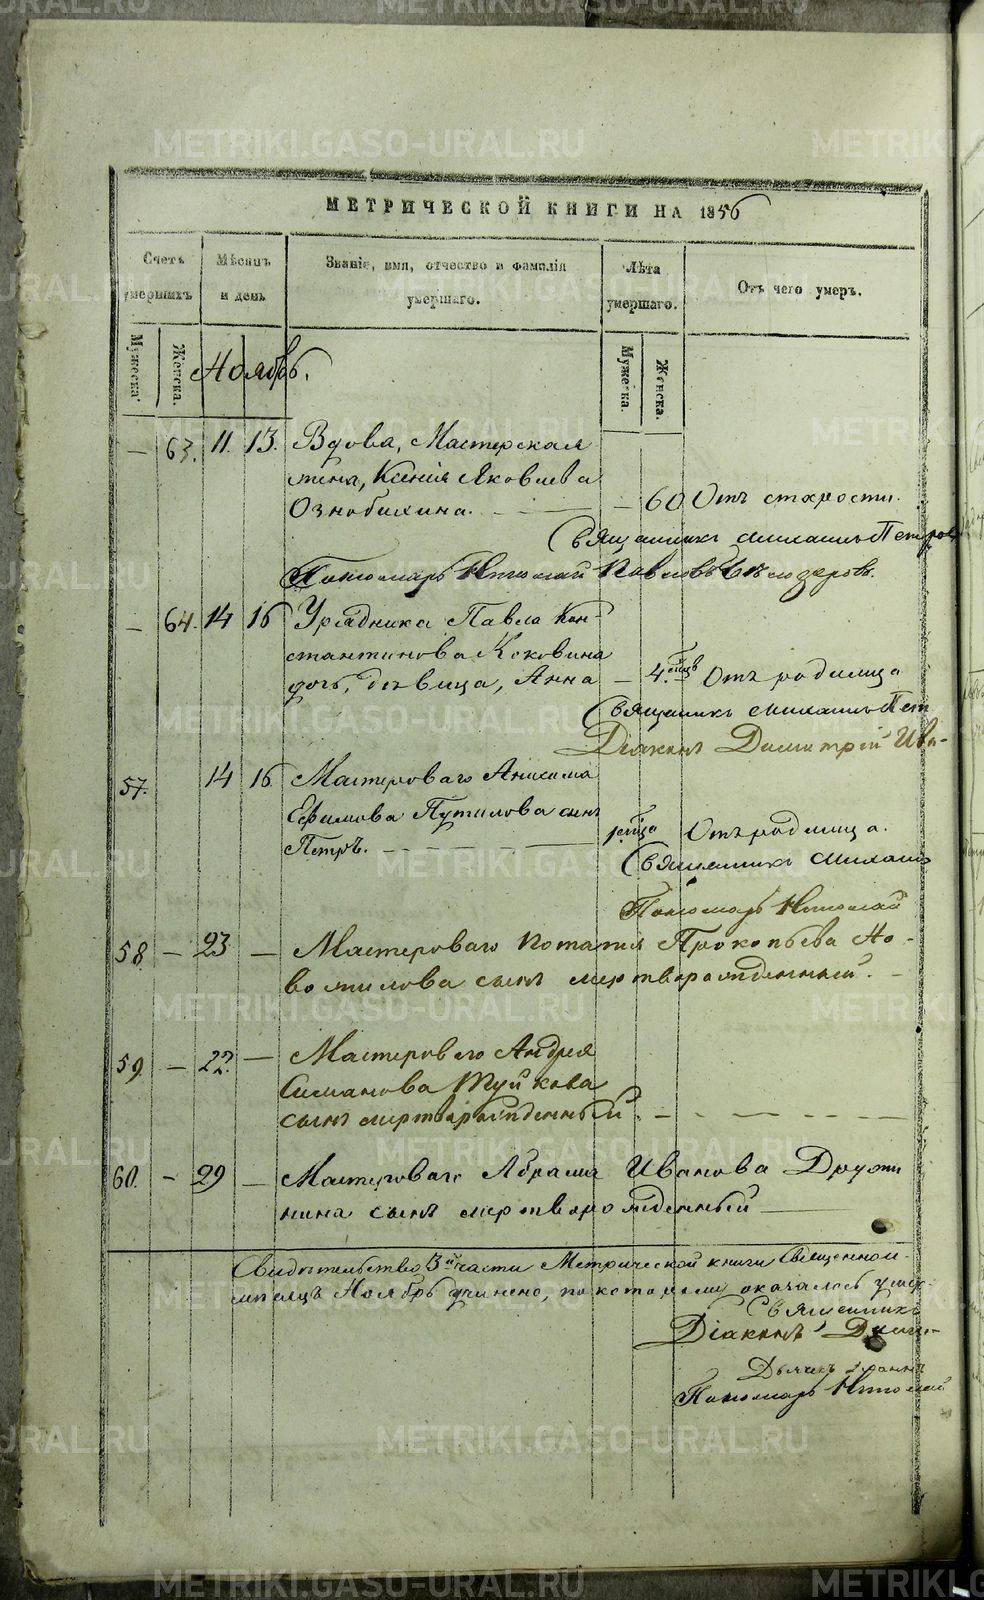 МЕТРИЧЕСКОЙ КНИГИ НА 1856
Счетъ умершихъ
Мѣсяцъ и день
Званіе, имя, отчество и фамилія умершаго.
Лѣта умершаго.
Отъ чего умеръ.
Мужеска.
Женска.
Мужеска.
Женска.
Ноябрь.
— 63. 11. 13. Вдова, Мастерская
жена, Ксенія Яковлева
Ознобихина. — — 60 Отъ старости.
Священникъ Михаилъ Петров
Пономарь Николай Павловъ Бѣлозеровъ.
— 64. 14 16 Урядника Павла Кон-
стантинова Коковина
дочь, дѣвица, Анна — 4. Отъ родимца
Священникъ Михаилъ Пет
Діаконъ Димитрій Ива-
57. 14 16. Мастероваго Анисима
Ефимова Путилова сынъ
Петръ. — Отъ родимца.
Священникъ Михаилъ
Пономарь Николай
58. — 23 — Мастероваго Потапія Прокопьева Но-
вожилова сынъ мертворожденный. —
59. — 22. — Мастероваго Андрея
Симанова
сынъ мертворожденный. —
60. — 29 — Мастероваго Абрама Иванова Дружи
нина сынъ мертворожденный —
Свидѣтельство 3й части Метрической книги Священно
мѣсяцъ Ноябрь учинено, по которому оказалось умер-
Священникъ
Діаконъ Дими-
Дьячекъ Іоаннъ
Пономарь Николай
METRIKI.GASO-URAL.RU